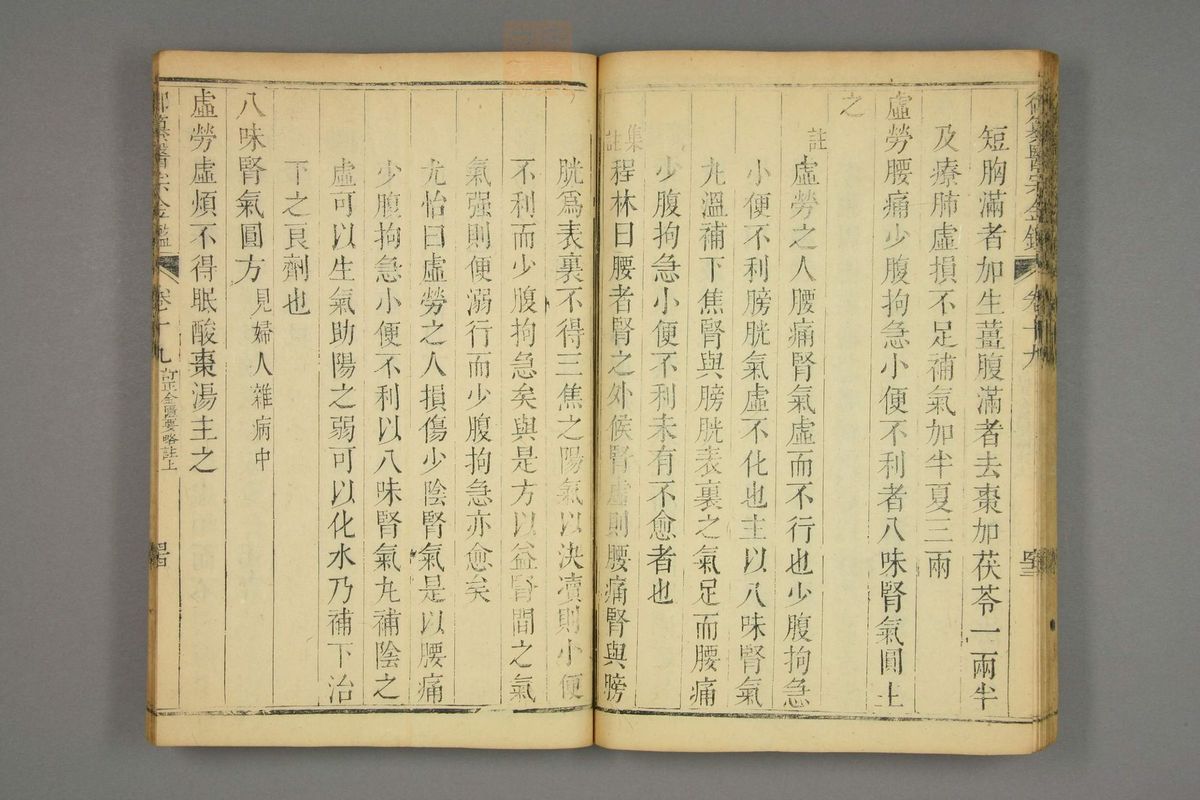 短胸滿者加生薑腹滿者去棗加茯苓一兩半
及療肺虛損不足補氣加半夏三兩
虛勞腰痛少腹拘急小便不利者八味腎氣圓主
之
註 虛勞之人腰痛腎氣虛而不行也少腹拘急
小便不利膀胱氣虛不化也主以八味腎氣
丸溫補下焦腎與膀胱表裏之氣足而腰痛
少腹拘急小便不利未有不愈者也
集註 程林曰腰者腎之外候腎虛則腰痛腎與膀
胱爲表裏不得三焦之陽氣以決瀆則小便
不利而少腹拘急矣與是方以益腎間之氣
氣强則便溺行而少腹拘急亦愈矣
尤怡曰虛勞之人損傷少陰腎氣是以腰痛
少腹拘急小便不利以八味腎氣丸補陰之
虛可以生氣助陽之弱可以化水乃補下治
下之良劑也
八味腎氣圓方 見婦人雜病中
虛勞虛煩不得眠酸棗湯主之
御纂醫宗金鑑 卷十九 訂正金匱要略註上